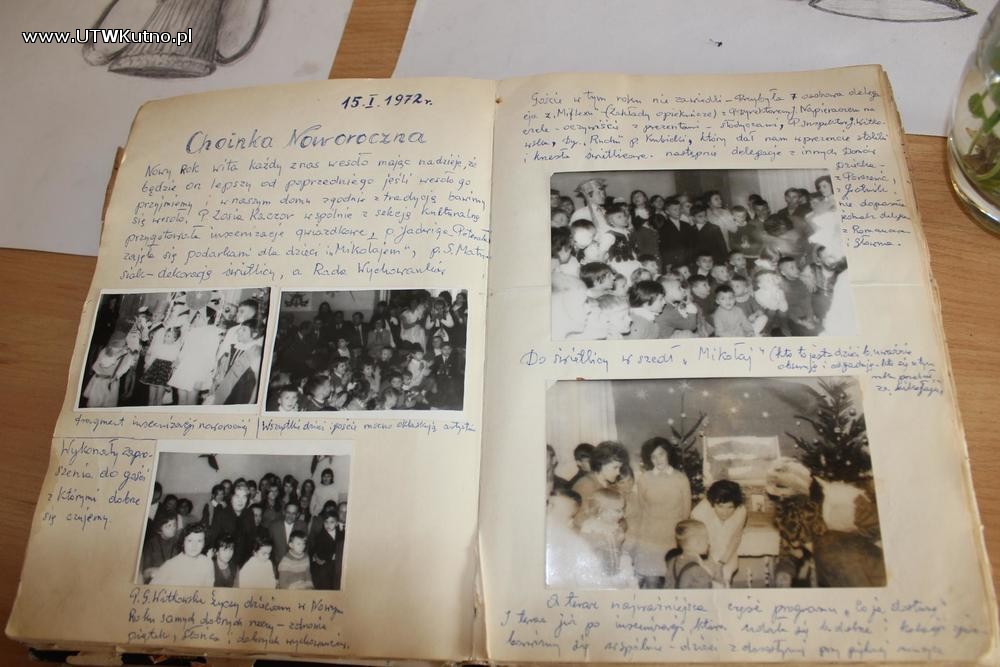 www.UTWKutno.pl
15.I.1972r.
Choinka Noworoczna
Nowy Rok wita każdy z nas wesoło mając nadzieję, że
będzie on lepszy od poprzedniego jeśli wesoło go
przyjmiemy i w naszym domu zgodnie z tradycją bawimy
się wesoło. P. Zosia Raczor wspólnie z sekcją kulturalną
przygotowała inscenizację gwiazdkową, p. Jadwiga
zajęła się podarkami dla dzieci i „Mikołajem", p. S. Maty-
siak - dekoracją świetlicy, a Rada Wychowanków
fragment inscenizacji noworocznej
Wszystkie dzieci i goście mocno oklaskują artystów
Wykonały zapro-
szenia do gości
z którymi dobrze
się czujemy.
P. G. Witkowska życzy dzieciom w Nowym
Roku samych dobrych rzeczy - zdrowia
piątek, słońca i dobrych wychowawców.
Goście w tym roku nie zawiedli - Przybyła 7 osobowa delega-
cja z „Miflexu" (Zakłady opiekuńcze) z p. dyrektorem J. Napieraczem na
czele - oczywiście z prezentami - słodyczami, P. Inspektor J. Witko-
wska, Dyr. Ruchu p. Kubicki, który dał nam w prezencie stoliki
i krzesła świetlicowe. następnie delegacje z innych Domów
Dziecka -
z Gołuski,
nie dopisała
jednak delegacja
z Romanowa
i Głowna.
Do świetlicy wszedł „Mikołaj" (kto to jest - dzieci b. uważnie
obserwują i odgadują - kto się w tym
roku przebrał
za
A teraz najważniejsza część programu „Co ja dostanę"
I teraz już po inscenizacji, która udała się b. dobrze i
bawimy się wspólnie - dzieci z dorosłymi przy pięknej muzyce